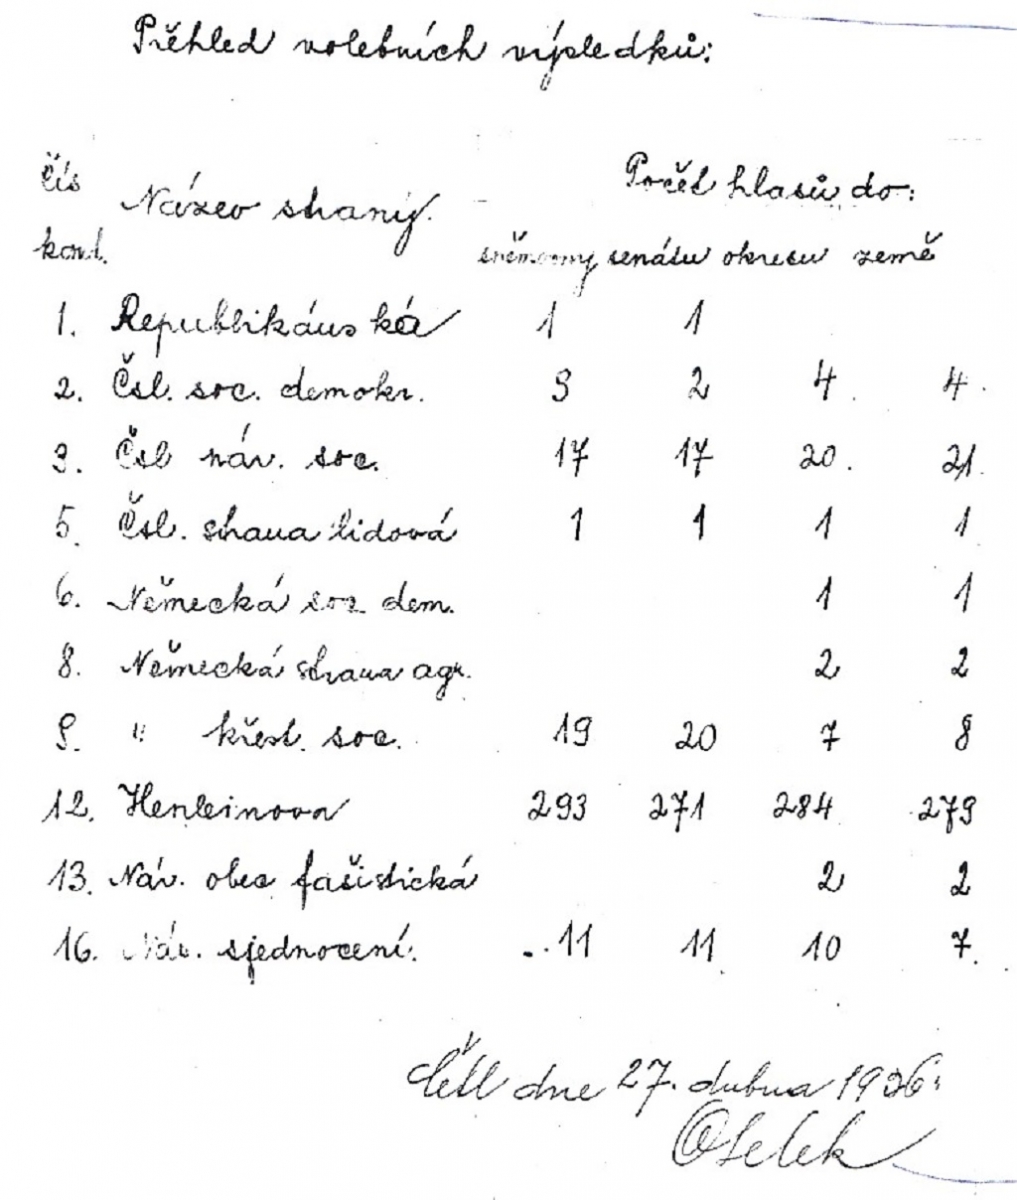 Přehled volebních výsledků:
Čís Název strany. Počet hlasů do:
kand. sněmovny senátu okresu země
1. Republikánská 1 1
2. Čsl. soc. demokr. 3 2 4 4.
3. Čsl nár. soc. 17 17 20. 21.
5. Čsl. strana lidová 1 1 1 1
6. Německá soc dem. 1 1
8. Německá strana agr. 2 2
9. " křest. soc. 19 20 7 8
12. Henleinova 293 271 284 279
13. Nár. obec fašistická 2 2
16. Nár. sjednocení. 11 11 10 7.
Četl dne 27. dubna 1936